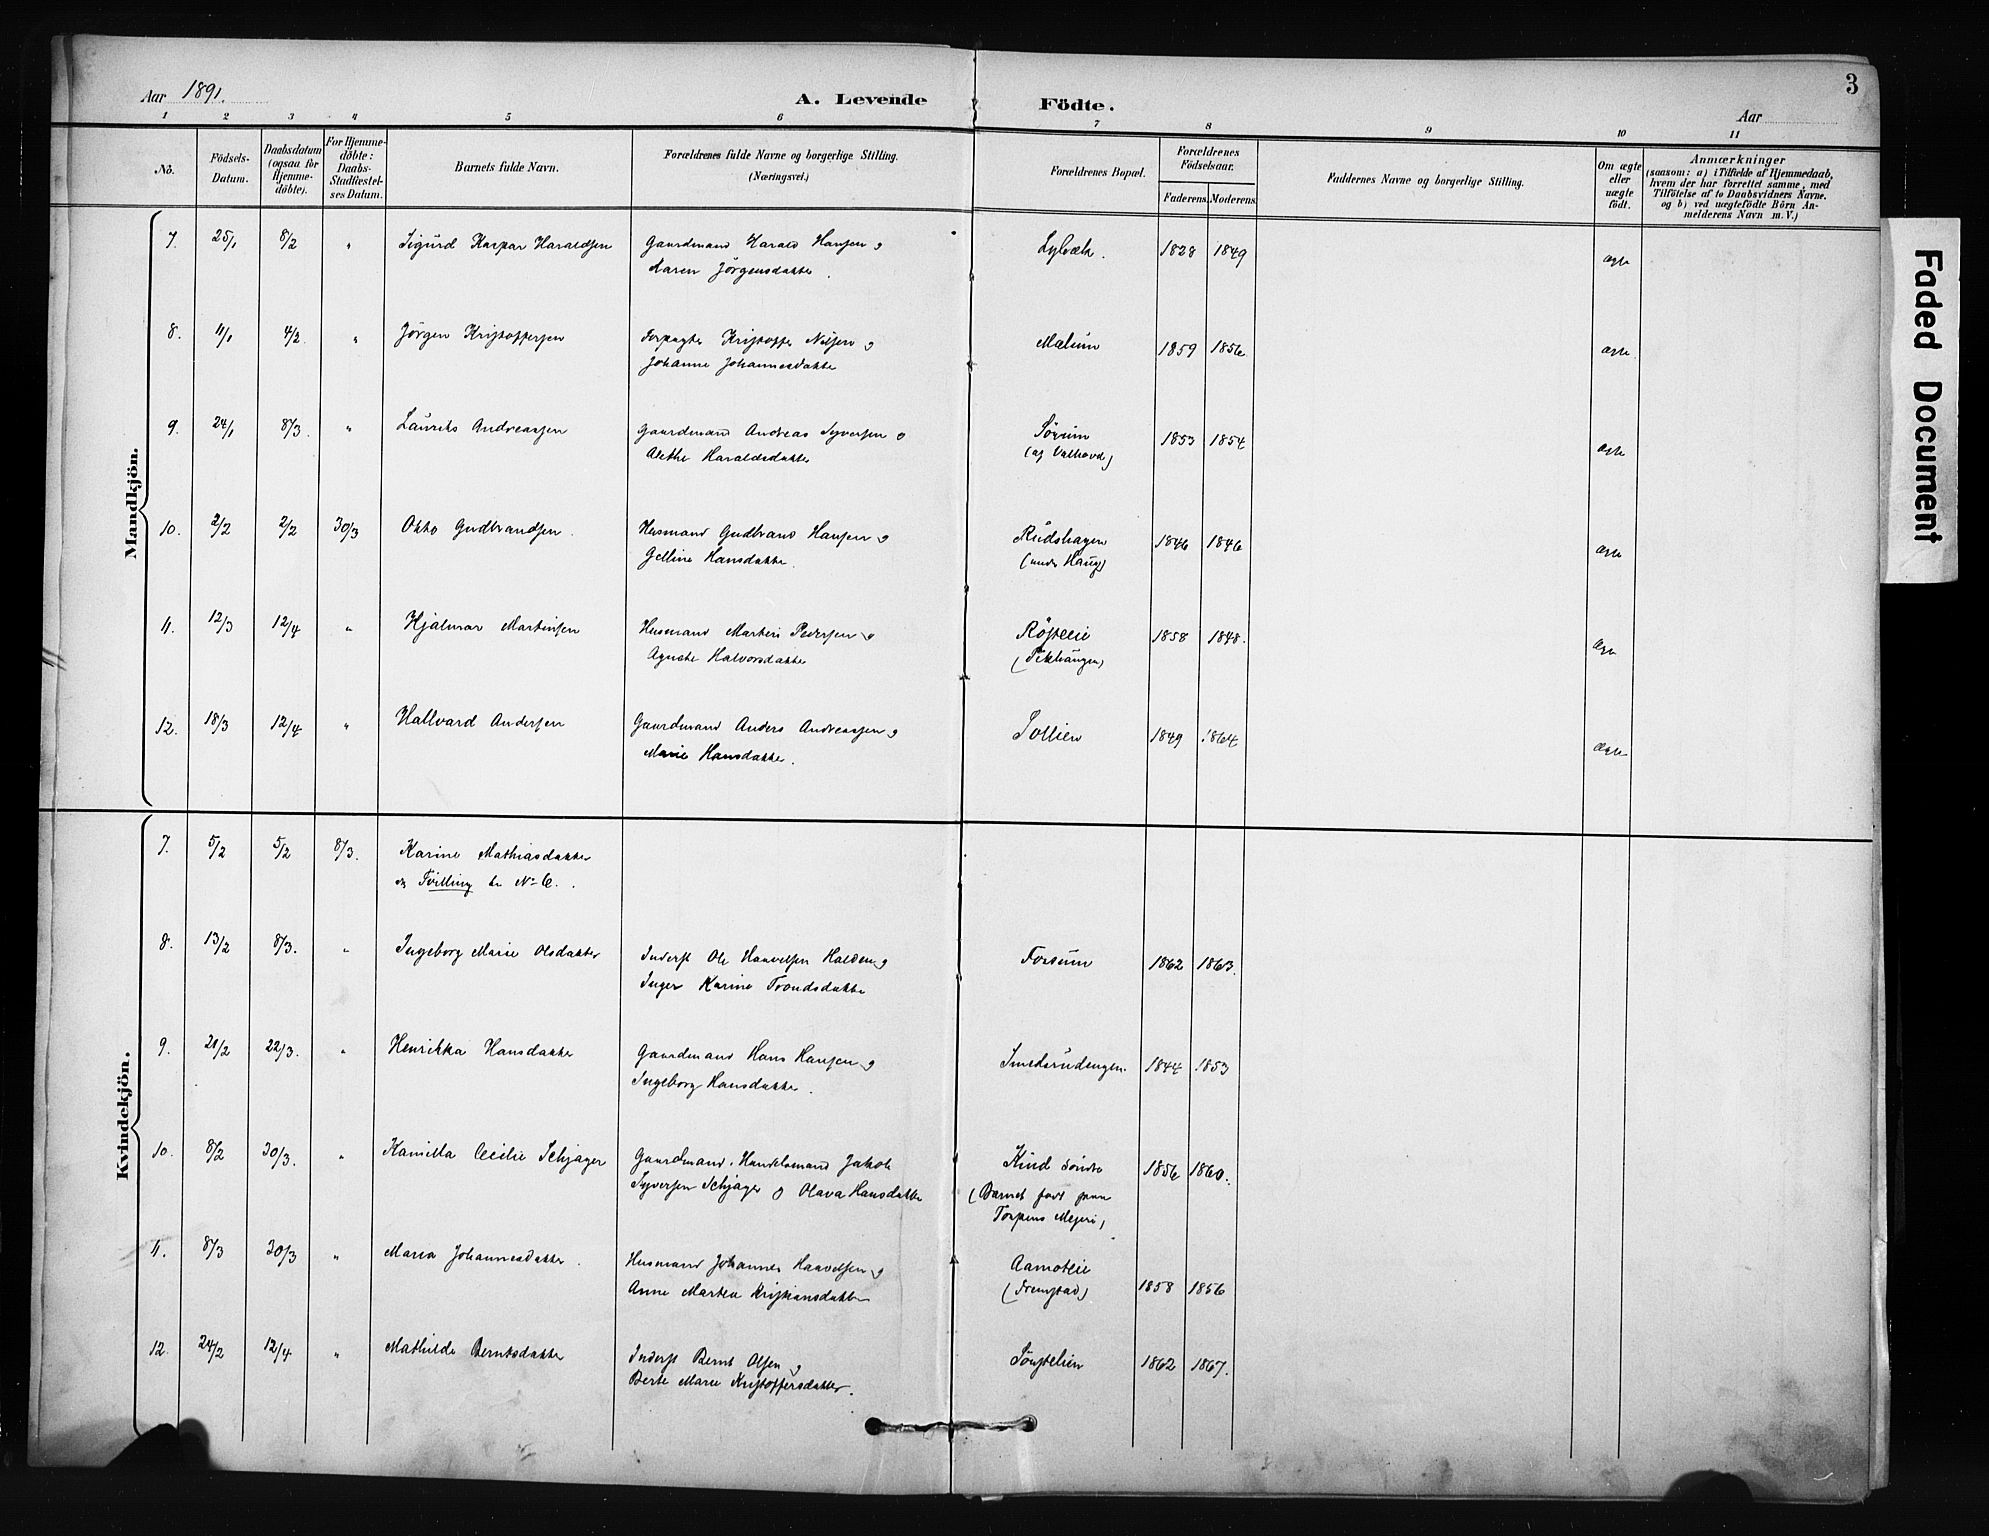 3
Aar 1891.
A. Levende Födte.
Aar
1 2 3 4 5 6 7 8 9 10 11
No.
Födsels-
Datum.
Daabsdatum
(ogsaa for
Hjemme-
döbte).
For Hjemme-
döbte:
Daabs-
Stadfæstel-
ses Datum.
Barnets fulde Navn.
Forældrenes fulde Navne og borgerlige Stilling.
(Næringsvei.)
Forældrenes Bopæl.
Forældrenes
Födselsaar.
Faderens. Moderens.
Faddernes Navne og borgerlige Stilling.
Om ægte
eller
uægte
födt.
Anmærkninger
(saasom: a) i Tilfælde af Hjemmedaab,
hvem der har forrettet samme, med
Tilföielse af to Daabsvidners Navne.
og b) ved uægtefödte Börn An-
melderens Navn m. V.)
Mandkjön.
7. 25/1 8/2 " Sigurd Kaspar Haraldsen Gaardmand Harald Hansen og 1828 1849 ægte
Karen Jörgensdatter.
8. 11/1 4/2. " Jörgen Kristoffersen Forpagter Kristoffer Nilsen og Mælum 1859 1856 ægte
Johanne Johannesdatter
9. 24/1 8/3. " Laurits Andreassen Gaardmand Andreas Syversen og Sörum 1853 1854 ægte
Alethe Haraldsdatter (af Valhovd)
10. 2/2 2/2 30/3 Otto Gudbrandsen. Husmand Gudbrand Hansen og Rudshagen 1846 1846 ægte
Gelline Hansdatter. (under Haug)
11. 12/3 12/4 " Hjalmar Martinsen Husmand Martin Pedersen og Rösteeie 1858 1848. ægte
Agnethe Halvorsdatter
12. 18/3 12/4 " Hallvard Andersen Gaardmand Anders Andreassen og Sollien 1849 1864 ægte
Marie Hansdatter.
Kvindekjön.
7. 5/2 5/2 8/3. Karine Mathiasdatter
Tvilling No 6.
8. 13/2 8/3. " Ingeborg Marie Olsdatter Inderst Ole Haavelsen Halden og Fossum 1862 1863.
Inger Karine Trondsdatter
9. 21/2 22/3. " Henrikka Hansdatter Gaardmand Hans Hansen og Smedsrudengen. 1844 1853
Ingeborg Hansdatter.
10. 8/2 30/3. " Kamilla Cecilie Schjager Gaardmand, Handelsmand Jakob Kind söndre 1856 1860.
Syversen Schjager og Olava Hansdatter (Barnet födt paa
Torpens Mejeri)
11. 8/3 30/3 " Maria Johannesdatter. Husmand Johannes Haavelsen og Aamoteie 1858 1856
Anne Martea Kristiansdatter (Fremstad)
12. 24/2 12/4 " Mathilde Berntsdatter Inderst Bernt Olsen og 1862 1867.
Berte Marie Kristoffersdatter.
Faded Document